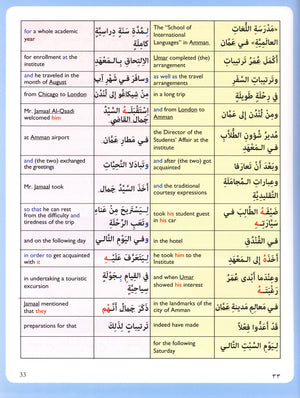 for a whole academic year
لِـمُدَّةِ سَنَةٍ دِراسِيَّةٍ كامِلَةٍ
The "School of International Languages" in Amman.
«مَدْرَسَةِ اللُّغاتِ العالَمِيَّةِ» في عَمَّان
for enrollment at the institute
الاِلتِحاقِ بِـالـمَعْهَدِ
Umar completed (the) arrangement
أَكْمَلَ عُمَرُ تَرتيباتِ
and he travelled in the month of August
وسافَرَ في شَهْرِ آب
as well as the travel arrangements
وتَرتيباتِ السَّفَرِ
from Chicago to London
مِنْ شيكاغُو إلى لُنْدُن
in a long trip
في رِحْلَةٍ طَويلَةٍ
Mr. Jamal Al-Qadi welcomed him
اِسْتَقْبَلَـهُ السَّيِّدُ جَمال القاضي
and from London to Amman
ومِنْ لُنْدُن إلى عَمَّان
at Amman airport
في مَطارِ عَمَّان
the Director of the Students' Affair at the institute
مُديرُ شُؤونِ الطُّلّابِ في الـمَعْهَدِ
and (the two) exchanged the greetings
وتَبادَلا التَّحِيّاتِ
and after (the two) got acquainted
وبَعْدَ أَنْ تَعارَفا
Mr. Jamal took
أَخَذَ السَّيِّدُ جَمال
and the traditional courtesy expressions
وعِباراتِ الـمُجامَلَةِ التَّقليديَّةِ
so that he can rest from the difficulty and tiredness of the trip
لِـيَسْتَريحَ مِنْ عَناءِ وتَعَبِ الرِّحْلَةِ
took his student guest in his car
ضَيْفَـهُ الطّالِبَ في سَيّارَتِـهِ
and on the following day
وفي اليَوْمِ التّالي
in the hotel
في الفُنْدُقِ
in order to get acquainted with it
لِـيَتَعَرَّفَ عَلَيْـهِ
he took him to the Institute
أَخَذَهُ إلى الـمَعْهَدِ
in undertaking a touristic excursion
في القِيامِ بِـجَوْلَةٍ سِياحِيَّةٍ
and when Umar showed his interest
وعِنْدَما أَبْدَى عُمَرُ رَغْبَتَـهُ
Jamaal mentioned that they
ذَكَرَ جَمال أَنَّـهُم
in the landmarks of the city of Amman
في مَعالِمِ مَدينةِ عَمَّان
preparations for that
تَرتيباتٍ لِذلِكَ
indeed have made
قَد أَعَدُّوا فِعْلاً
for the following Saturday
لِـيَومِ السَّبْتِ التّالي
33
٣٣